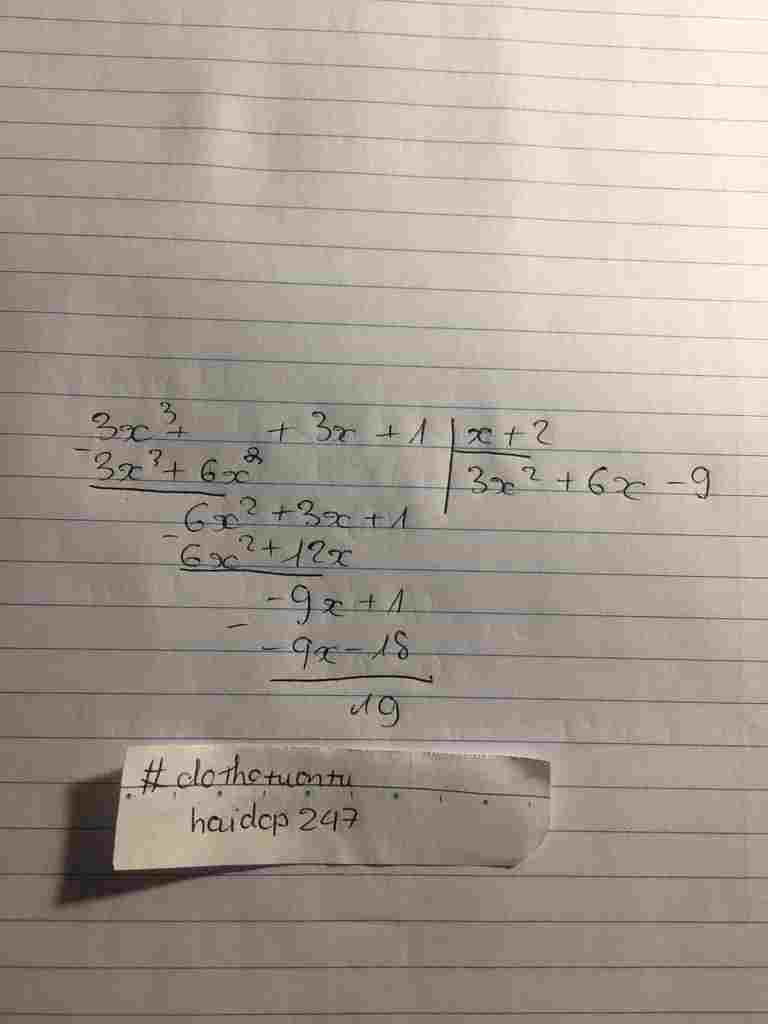 3x³+ + 3x + 1 | x + 2
- 3x³ + 6x² | 3x² + 6x - 9
6x² + 3x + 1
- 6x² + 12x
- 9x + 1
- - 9x - 18
19
# clothotuontu
haidcp 247